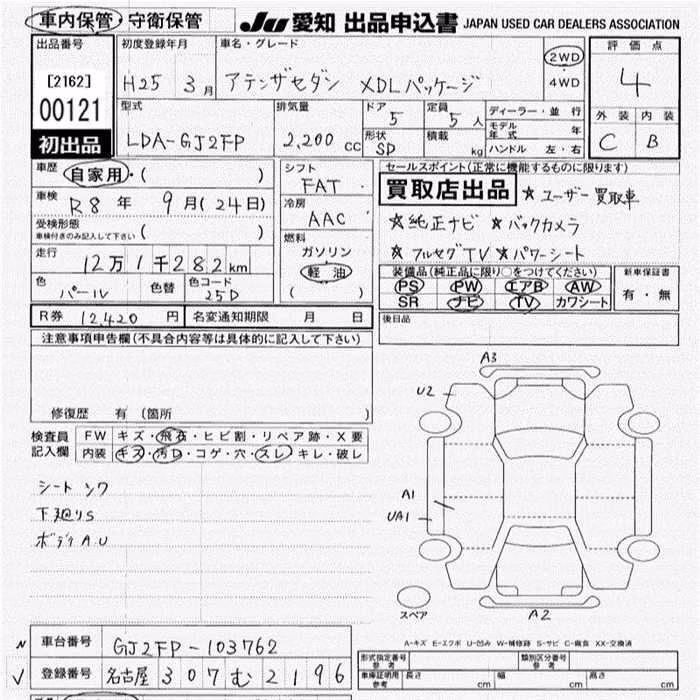 車内保管・守衛保管
JU 愛知 出品申込書 JAPAN USED CAR DEALERS ASSOCIATION
出品番号
[2162]
00121
初出品
初度登録年月
H25 3月
車名・グレード
アテンザセダン XDLパッケージ
2WD
・
4WD
評価点
4
外装 内装
C B
型式
LDA-GJ2FP
排気量
2,200 cc
ドア
5
定員
5人
形状
SD
積載
kg
ディーラー・並行
モデル年式 年
ハンドル 左・右
車歴
自家用・( )
車検
R8年 9月(24日)
受検形態
車検付きのみ記入して下さい ( )
走行
12万1千282km
色
パール
色替
色コード
25D
シフト
FAT
冷房
AAC
燃料
ガソリン
・
軽油
( )
セールスポイント(正常に機能するものに限ります)
買取店出品 ☆ユーザー買取車
☆純正ナビ ☆バックカメラ
☆フルセグTV ☆パワーシート
装備品(純正品に限り○をつけてください)
PS・PW・エアB・AW
SR・ナビ・TV・カワシート
新車保証書
有・無
R券 12,420円
名変通知期限 月 日
後日品
注意事項申告欄(不具合内容等は具体的に記入して下さい)
修復歴 有 (箇所 )
検査員
記入欄
FW キズ・飛石・ヒビ割・リペア跡・X要
内装 キズ・汚レ・コゲ・穴・スレ・キレ・破レ
シート ソワ
下廻りS
ボディA.U
A3
U2
A1
UA1
A2
スペア
A-キズ E-エクボ U-凹み W-補修跡 S-サビ C-腐食 XX-交換済
車台番号 GJ2FP-103762
登録番号 名古屋 307 む 2196
形式指定番号
参考
類別区分番号
参考
車庫証明用
参考
長さ cm 幅 cm 高さ cm